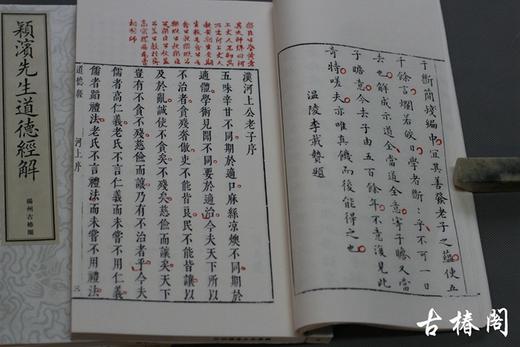 穎濱先生道德經解
揚州古椿閣
子斷簡殘編中宜其善發老子之蘊使五
千餘言爛若皎日學者斷斷乎不可一日
去也解成示道全當道全意寄子瞻又當
子瞻意今去子由五百餘年不意復見此
奇特嗟夫亦唯真饑而後能得之也
溫陵李載贄題
漢河上公老子序
五味辛甘不同期於適口麻絲涼燠不同期於
適體學術見聞不同要於適治今夫天下所以
不治者貪殘奢傲吏不能皆良民不能皆讓以
及於亂誠使不貪矣不殘矣慈儉而讓矣天下
豈有不貪不殘慈儉而讓乃有不治者乎今夫
儒者高仁義老氏不言仁義而未嘗不用仁義
儒者蹈禮法老氏不言禮法而未嘗不用禮法
道德經
河上序
三
古椿閣